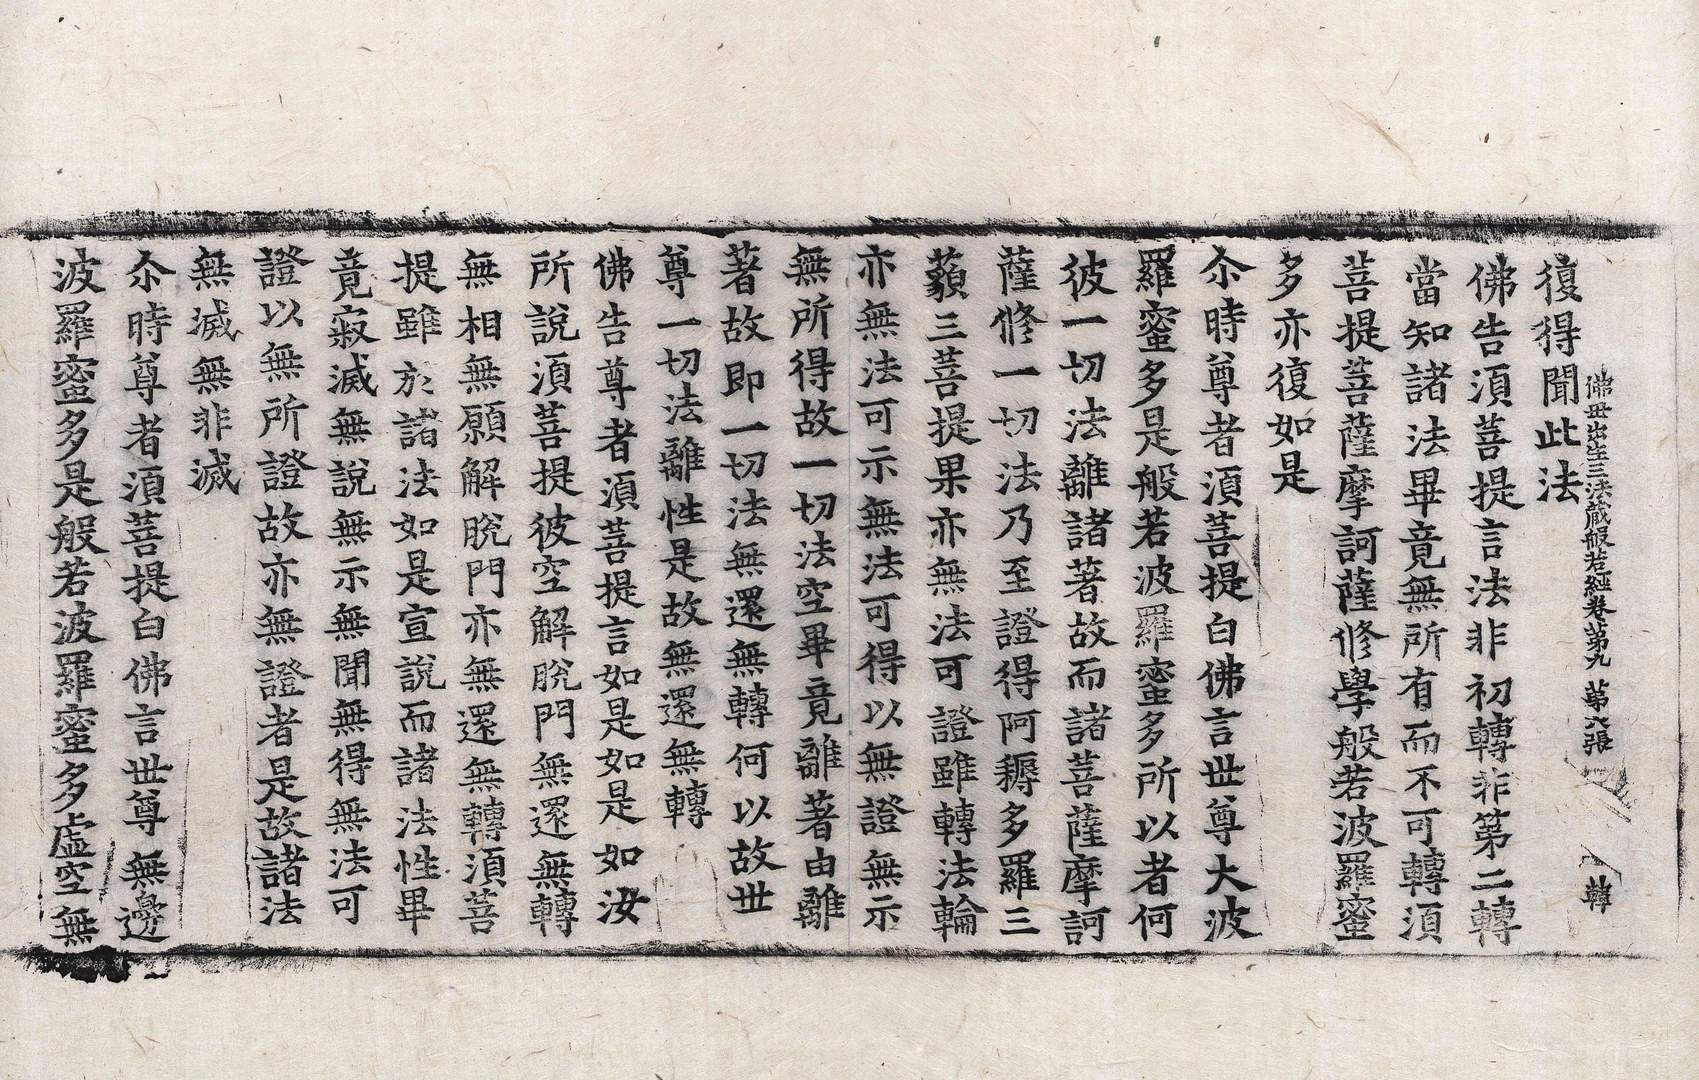 佛毋出生三法藏般若經卷第九 第八張 韓
復得聞此法
佛告須菩提言法非初轉非第二轉
當知諸法畢竟無所有而不可轉須
菩提菩薩摩訶薩修學般若波羅蜜
多亦復如是
尒時尊者須菩提白佛言世尊大波
羅蜜多是般若波羅蜜多所以者何
彼一切法離諸著故而諸菩薩摩訶
薩修一切法乃至證得阿耨多羅三
藐三菩提果亦無法可證雖轉法輪
亦無法可示無法可得以無證無示
無所得故一切法空畢竟離著由離
著故即一切法無還無轉何以故世
尊一切法離性是故無還無轉
佛告尊者須菩提言如是如是如汝
所說須菩提彼空解脫門無還無轉
無相無願解脫門亦無還無轉須菩
提雖於諸法如是宣說而諸法性畢
竟寂滅無說無示無聞無得無法可
證以無所證故亦無證者是故諸法
無滅無非滅
尒時尊者須菩提白佛言世尊無邊
波羅蜜多是般若波羅蜜多虛空無